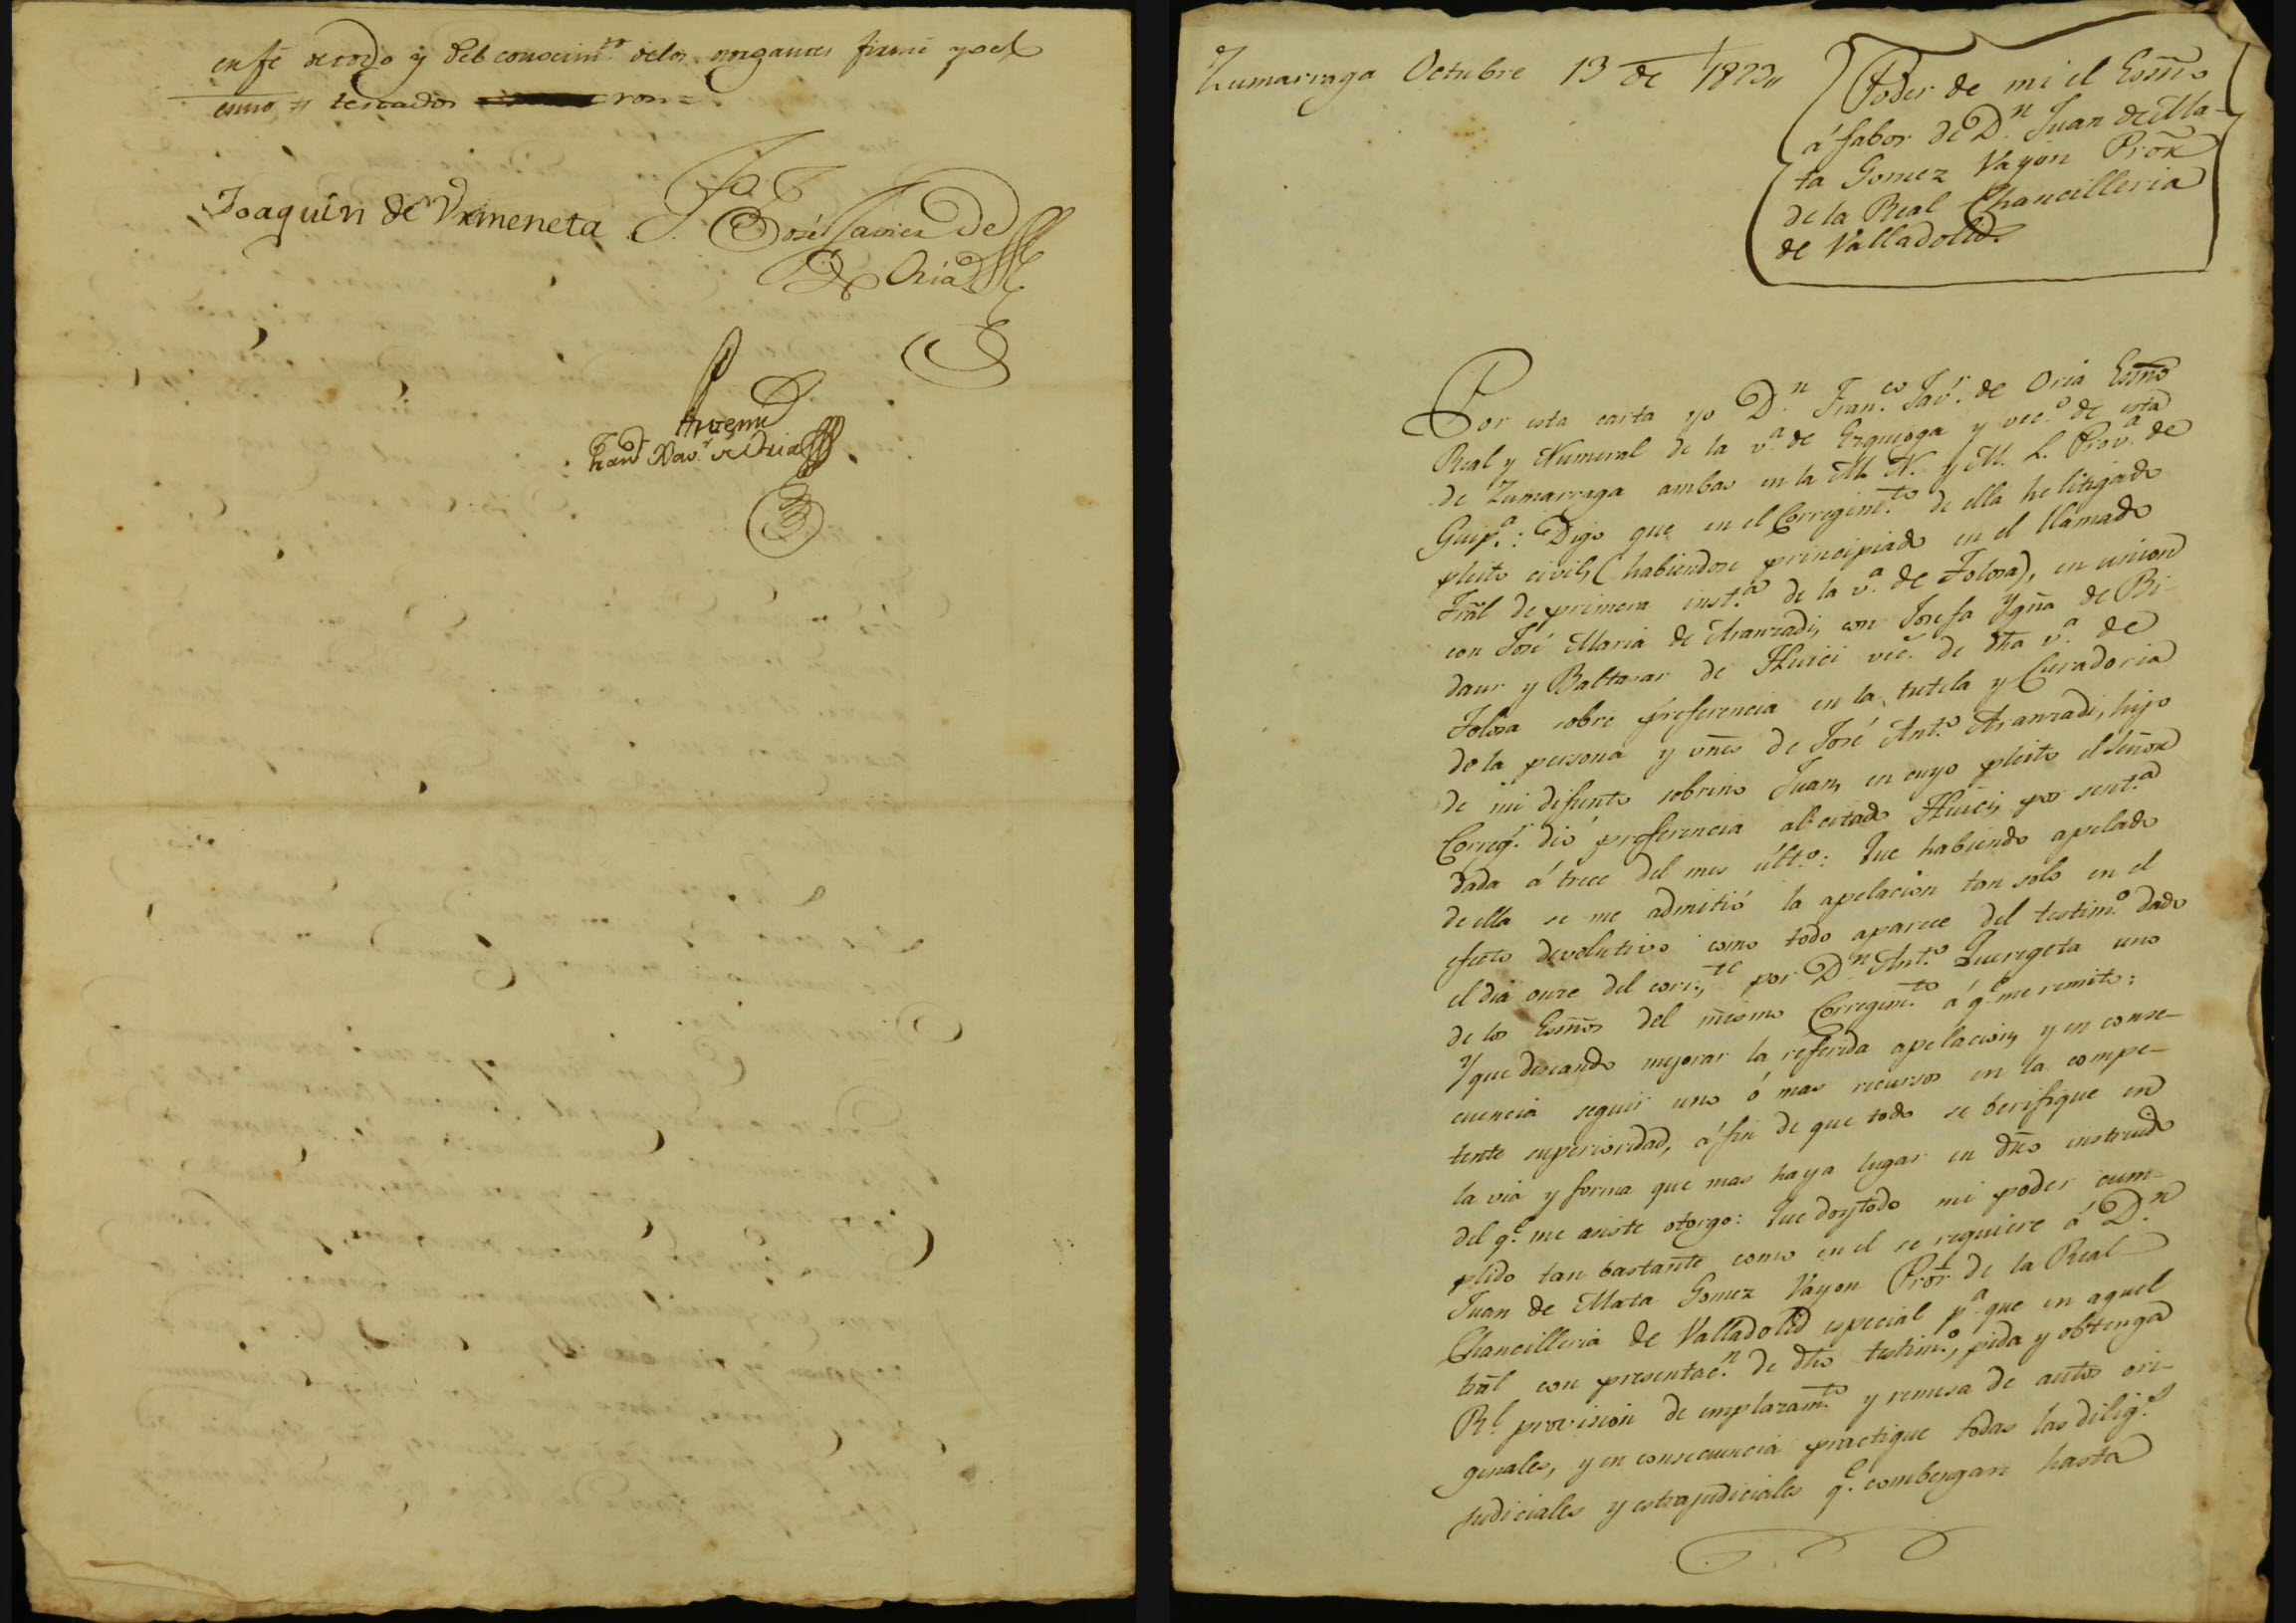 en fé de todo y del conocim.to de los otorgantes firmé yo el
esno = testados ron =
Joaquin de Urmeneta
José Javier de
Oria
Ante mi
Fran.co Xav.r de Oria
Zumarraga Octubre 13 de 1823,,
Poder de mi el Esno
á fabor de D.n Juan de Ma-
ta Gomez Vayon Pror
de la Real Chancilleria
de Valladolid.
Por esta carta yo D.n Fran.co Jav.r de Oria Esno
Real y Numeral de la v.a de Ezquioga y vec.o de esta
de Zumarraga ambas en la M. N. y M. L. Prov.a de
Guip.a: Digo que en el Corregim.to de ella he litigado
pleito civil, (habiendose principiado en el llamado
Tral de primera inst.a de la v.a de Tolosa), en union
con José Maria de Aranzadi, con Josefa Ygña de Bi-
daur y Baltasar de Huici vec.s de dha v.a de
Tolosa sobre preferencia en la tutela y Curadoria
de la persona y vnes de José Ant.o Aranzadi, hijo
de mi difunto sobrino Juan, en cuyo pleito el Señor
Correg.r dió preferencia al citado Huici, por sent.a
dada á trece del mes últ.o: Que habiendo apelado
de ella se me admitió la apelacion tan solo en el
efecto devolutivo como todo aparece del testim.o dado
el dia onze del corr.te, por D.n Ant.o Queregeta uno
de los Esnos del mismo Corregim.to á q.e me remito:
Y que deseando mejorar la referida apelacion, y en conse-
cuencia seguir uno ó mas recursos en la compe-
tente superioridad, á fin de que todo se berifique en
la via y forma que mas haya lugar en dro instruido
del q.e me asiste otorgo: Que doy todo mi poder cum-
plido tan bastante como en el se requiere á D.n
Juan de Mata Gomez Vayon Pror de la Real
Chancilleria de Valladolid especial p.a que en aquel
tral con presentac.n de dho testim.o, pida y obtenga
R.l provision de emplazam.to y remesa de autos ori-
ginales, y en consecuencia practique todas las dilig.s
judiciales y estrajudiciales q.e combengan hasta